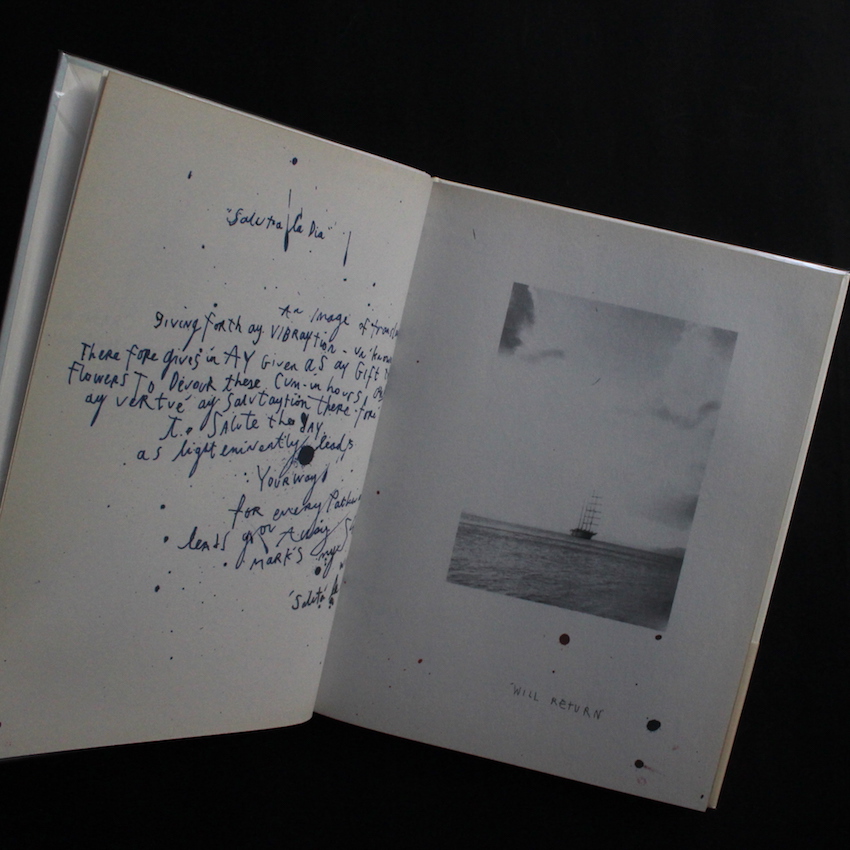 "Saluta la Dia"
An Image of
giving forth ay VIBRaytion -
There fore gives in AY Given as ay Gift
Flowers To Devour these Cum-in hours
ay vertue ay Salutaytion there fore
To Salute the DAY
as light eminently leads
Your way
for every
leads you Away
MARK'S
"WILL RETURN"